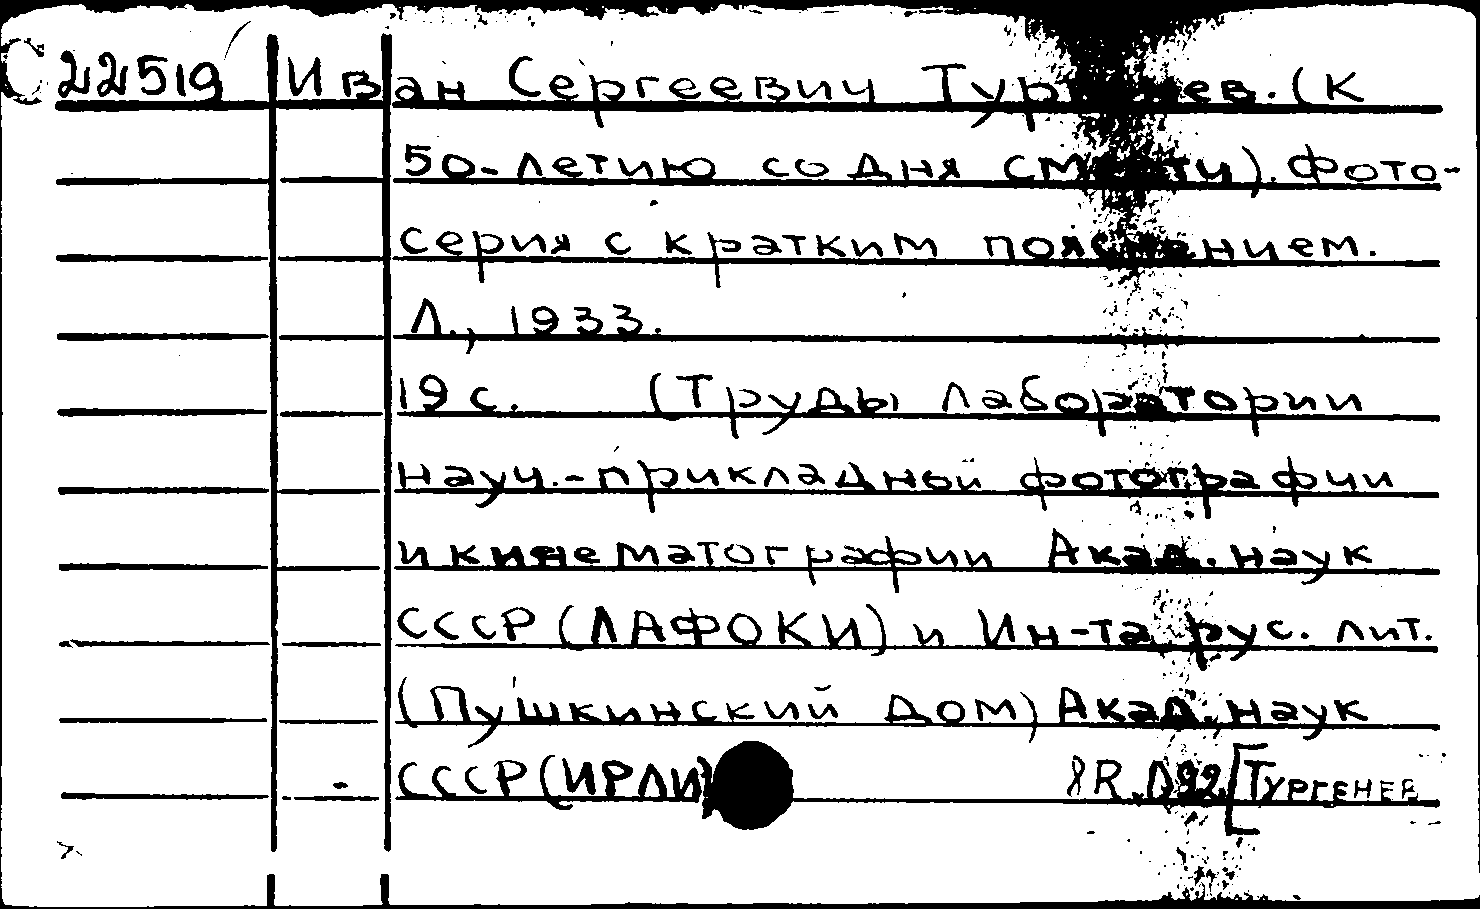 С 22519 Иван Сергеевич Тургенев. (К
50-летию со дня смерти). Фото-
серия с кратким пояснением.
Л., 1933.
19 с. (Труды Лаборатории
науч.-прикладной фотографии
и кинематографии Акад. наук
СССР (ЛАФОКИ) и Ин-та рус. лит.
(Пушкинский дом) Акад. наук
СССР (ИРЛИ)
8R. Л92 [Тургенев